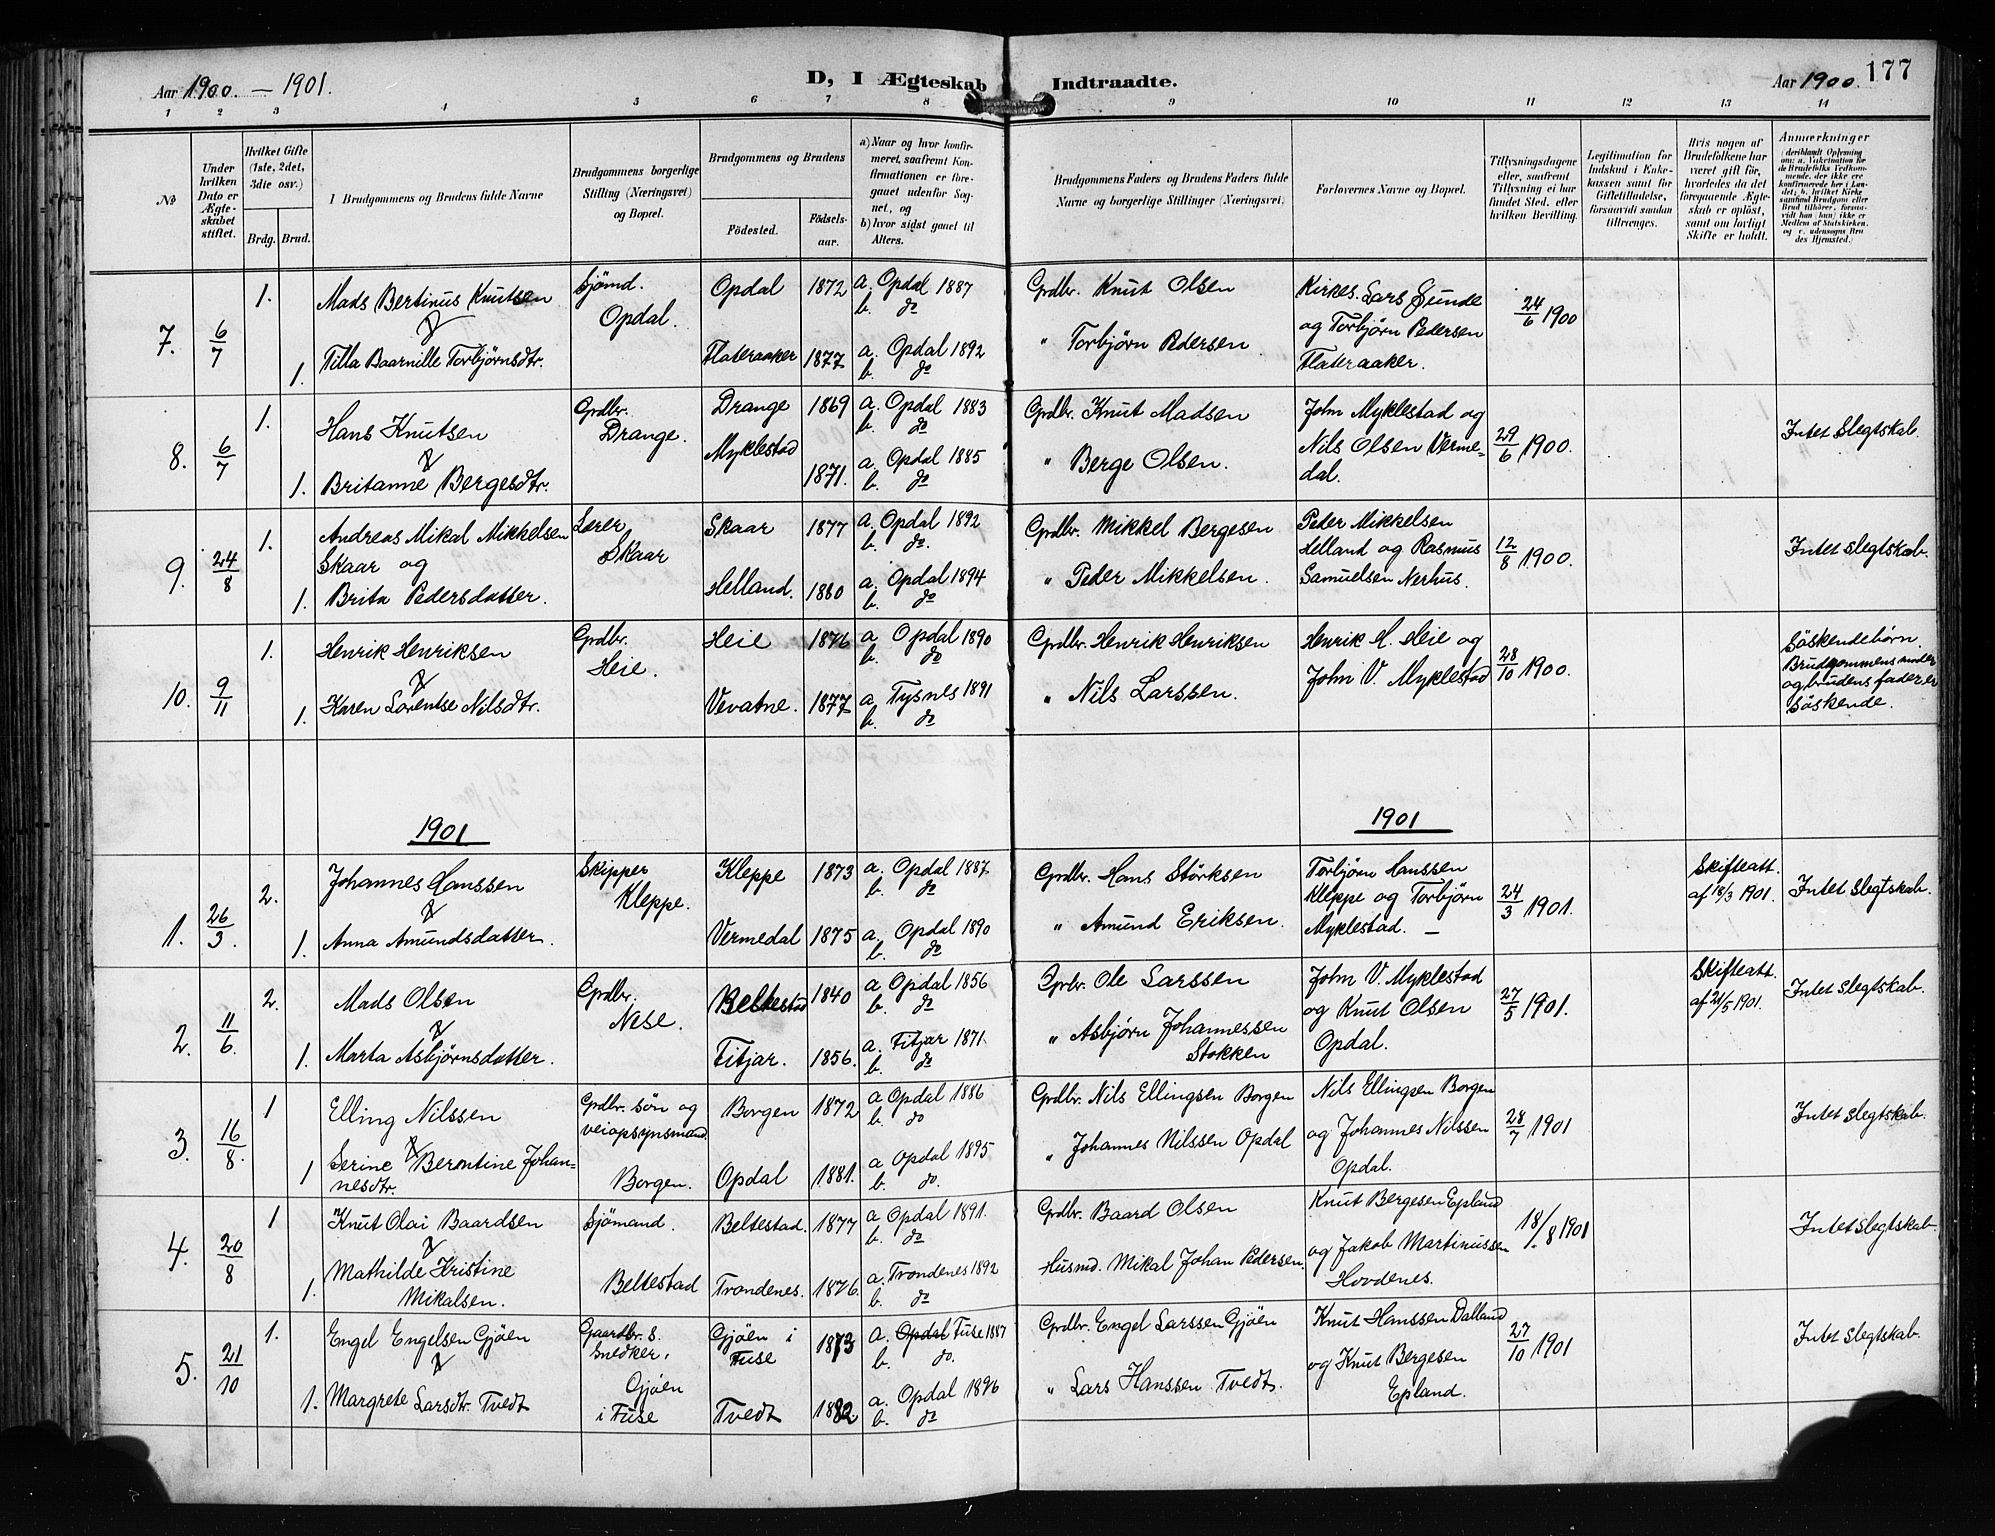 Aar 1900. – 1901.
D, I Ægteskab Indtraadte.
Aar 1900.
177
1 2 3 4 5 6 7 8 9 10 11 12 13 14
№
Under hvilken Dato er Ægteskabet stiftet.
Hvilket Gifte (1ste, 2det, 3die osv.)
Brdg. Brud.
I Brudgommens og Brudens fulde Navne
Brudgommens borgerlige Stilling (Næringsvei) og Bopæl.
Brudgommens og Brudens
Fødested.
Fødselsaar.
a) Naar og hvor konfirmeret, saafremt Konfirmationen er foregaaet udenfor Sognet, og
b) hvor sidst gaaet til Alters.
Brudgommens Faders og Brudens Faders fulde Navne og borgerlige Stillinger (Næringsvei).
Forlovernes Navne og Bopæl.
Tillysningsdagene eller, saafremt Tillysning ei har fundet Sted, efter hvilken Bevilling.
Legitimation for Indskud i Enkekassen samt for Giftetilladelse, forsaavidt saadan tiltrænges.
Hvis nogen af Brudefolkene har været gift før, hvorledes da det foregaaende Ægteskab er opløst, samt om lovligt Skifte er holdt.
Anmærkninger
(deriblandt Oplysning om: a. Vakcination for de Brudefolks Vedkommende, der ikke ere konfirmerede her i Landet; b. hvilket Kirkesamfund Brudgom eller Brud tilhører, forsaavidt han (hun) ikke er Medlem af Statskirken, og c. udensogns Brudes Hjemsted.)
7. 6/7 1. Mads Bertinus Knutsen Sjømd. Opdal. Opdal 1872 a. Opdal 1887 b. do Grdbr. Knut Olsen Kirkes. Lars Sunde 24/6 1900
1. Tilla Baarnille Torbjørnsdtr. Flateraaker 1877 a. Opdal 1892 b. do " Torbjørn Pedersen og Torbjørn Pedersen Flateraaker.
8. 6/7 1. Hans Knutsen Grdbr. Drange. Drange 1869 a. Opdal 1883 b. do Grdbr. Knut Madsen John Myklestad og 29/6 1900. Intet slegtskab.
1. Britanne Bergesdtr. Myklestad 1871. a. Opdal 1885 b. do " Berge Olsen. Nils Olsen Vermedal.
9. 24/8 1. Andreas Mikal Mikkelsen Skaar og Lærer Skaar Skaar 1877 a. Opdal 1892 b. do. Grdbr. Mikkel Bergesen Peder Mikkelsen 12/8 1900. Intet slegtskab.
1. Brita Pedersdatter. Helland. 1880 a. Opdal 1894 b. do " Peder Mikkelsen. Helland og Rasmus Samuelsen Nerhus.
10. 9/11 1. Henrik Henriksen Grdbr. Heie. Heie 1876 a. Opdal 1890 b. do Grdbr. Henrik Henriksen Henrik H. Heie og 28/10 1900. Söskendebørn. Brudgommens moder og brudens fader er söskende.
1. Karen Lorentse Nilsdtr. Vevatne. 1877 a. Tysnes 1891 b. do " Nils Larssen. John V. Myklestad
1901 1901
1. 26/3. 2. Johannes Hanssen Skipper Kleppe. Kleppe 1873 a. Opdal 1887. b. do Grdbr. Hans Størksen Torbjørn Hanssen 24/3 1901. Skifteatt. af 18/3 1901. Intet slegtskab.
1. Anna Amundsdatter. Vermedal 1875 a. Opdal 1890 b. do " Amund Eriksen. Kleppe og Torbjørn Myklestad. –
2. 11/6. 2. Mads Olsen Grdbr. Nese. Beltestad 1840 a Opdal 1856 b. do Grbr. Ole Larssen John V. Myklestad 27/5 1901. Skifteatt. af 21/5 1901. Intet slegtskab.
1. Marta Asbjørnsdatter. Fitjar. 1856. a. Fitjar 1871. b. do " Asbjørn Johannessen Stokken og Knut Olsen Opdal.
3. 16/8. 1 Elling Nilssen Grdbr. søn og veiopsynsmand. Borgen. Borgen 1872 a Opdal 1886 b. do Grdbr. Nils Ellingsen Borgen Nils Ellingsen Borgen 28/7 1901 Intet slegtskab.
1 Serine Berentine Johannesdtr. Opdal 1881. a Opdal 1895 b. do. " Johannes Nilssen Opdal og Johannes Nilssen Opdal.
4. 20/8 1 Knut Olai Baardsen Sjømand. Beltestad Beltestad. 1877 a Opdal 1891. b. do Grdbr. Baard Olsen Knut Bergesen Epland 18/8 1901 Intet slegtskab.
1. Mathilde Kristine Mikalsen. Trondenes. 1876. a. Trondenes 1892 b. do Husmd. Mikal Johan Pedersen. og Jakob Martinussen Hovdenes.
5. 21/10 1. Engel Engelsen Gjøen Gaardbr. s. snedker, Gjøen i Fuse Gjøen i Fuse 1873 a. Opdal Fuse 1887 b. do. Grdbr. Engel Larssen Gjøen Knut Hanssen Dalland 27/10 1901 Intet slegtskab.
1. Margrete Larsdtr. Tvedt Tvedt 1882 a. Opdal 1896 b. do " Lars Hanssen Tvedt. og Knut Bergesen Epland.